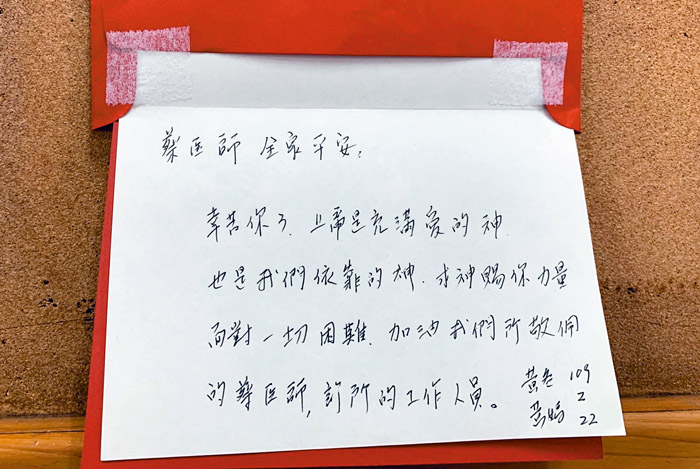 蔡医師 全家平安：
辛苦你了．上帝是充滿愛的神．
也是我們依靠的神．求神賜你力量
面對一切困難．加油我們所敬佩
的蔡医師，診所的工作人員。
黃爸 109
黃媽 2
22